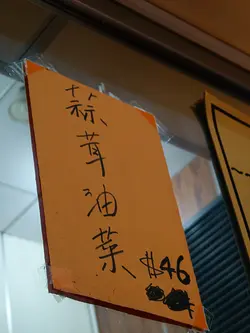 蒜茸油菜
$46